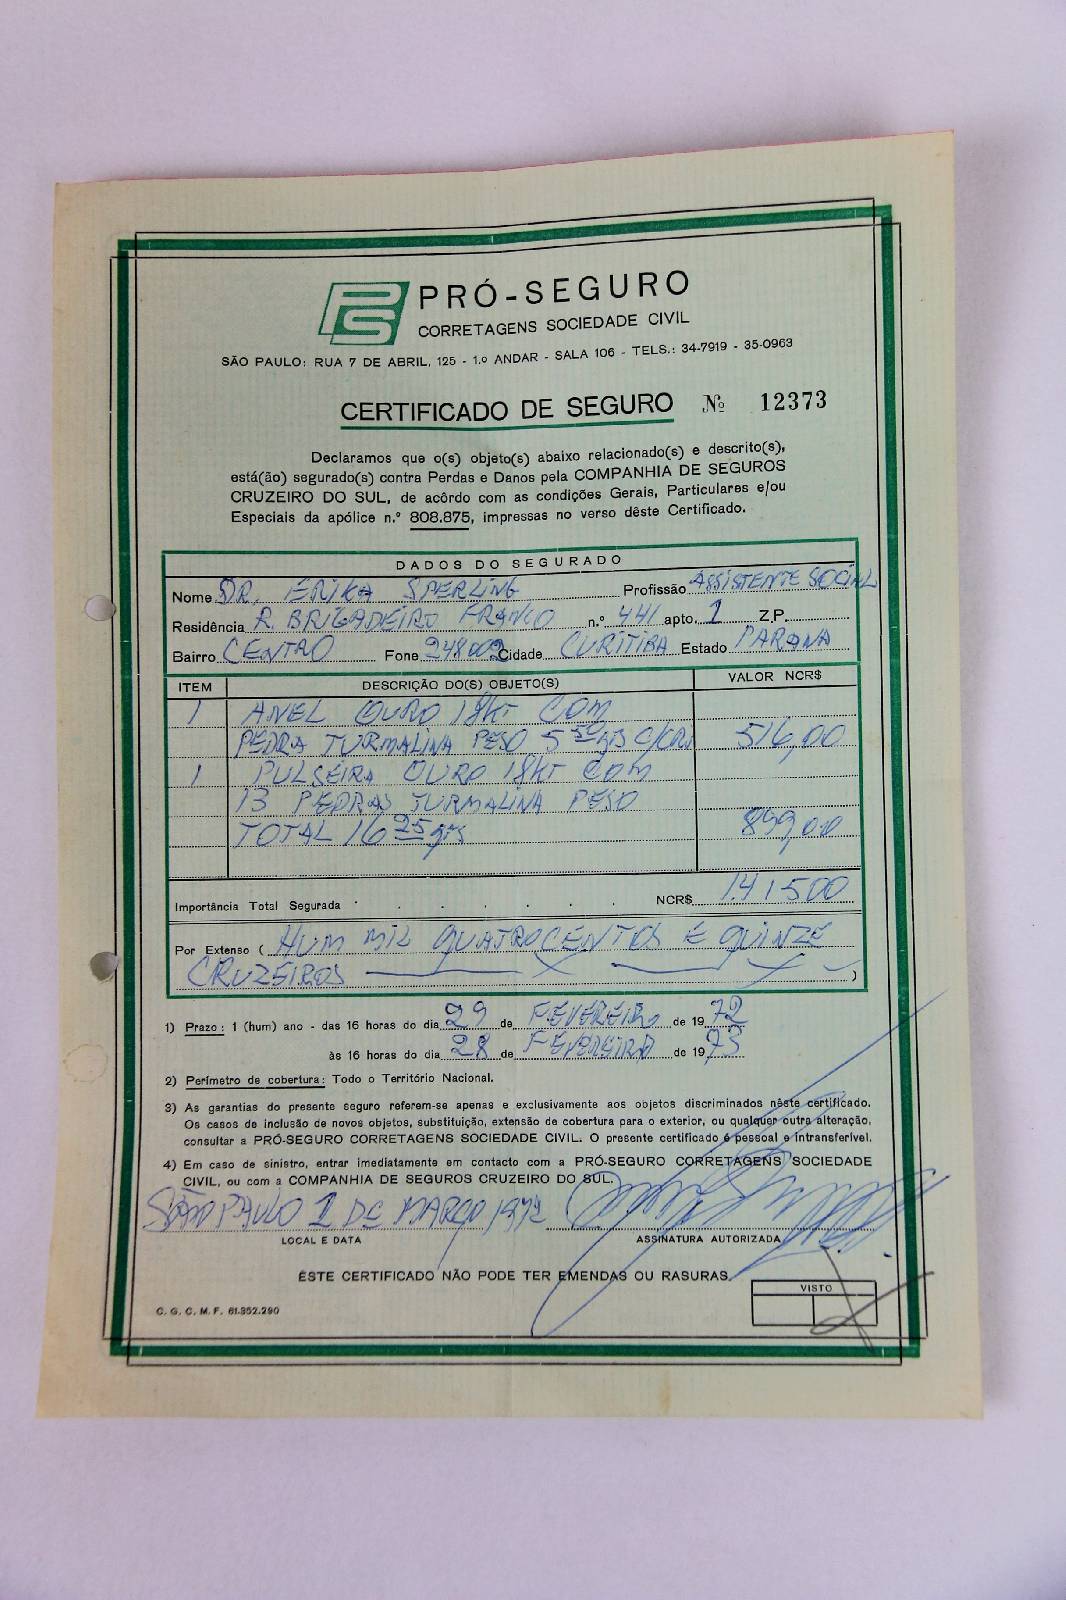 PS PRÓ-SEGURO
CORRETAGENS SOCIEDADE CIVIL
SÃO PAULO: RUA 7 DE ABRIL, 125 - 1.º ANDAR - SALA 106 - TELS.: 34-7919 - 35-0963
CERTIFICADO DE SEGURO Nº 12373
Declaramos que o(s) objeto(s) abaixo relacionado(s) e descrito(s),
está(ão) segurado(s) contra Perdas e Danos pela COMPANHIA DE SEGUROS
CRUZEIRO DO SUL, de acôrdo com as condições Gerais, Particulares e/ou
Especiais da apólice n.º 808.875, impressas no verso dêste Certificado.
DADOS DO SEGURADO
Nome DR. ERIKA SPERLING Profissão ASSISTENTE SOCIAL
Residência R. BRIGADEIRO FRANCO n.º 441 apto. 1 Z.P.
Bairro CENTRO Fone 248002 Cidade CURITIBA Estado PARANA
ITEM DESCRIÇÃO DO(S) OBJETO(S) VALOR NCR$
1 ANEL OURO 18KT COM
PEDRA TURMALINA PESO 5 50 grs 516,00
1 PULSEIRA OURO 18KT COM
13 PEDRAS TURMALINA PESO
TOTAL 16 25 grs 899,00
Importância Total Segurada NCR$ 1.41500
Por Extenso ( HUM MIL QUATROCENTOS E QUINZE
CRUZEIROS )
1) Prazo: 1 (hum) ano - das 16 horas do dia 29 de FEVEREIRO de 1972
às 16 horas do dia 28 de FEVEREIRO de 1973
2) Perímetro de cobertura: Todo o Território Nacional.
3) As garantias do presente seguro referem-se apenas e exclusivamente aos objetos discriminados nêste certificado.
Os casos de inclusão de novos objetos, substituição, extensão de cobertura para o exterior, ou qualquer outra alteração,
consultar a PRÓ-SEGURO CORRETAGENS SOCIEDADE CIVIL. O presente certificado é pessoal e intransferível.
4) Em caso de sinistro, entrar imediatamente em contacto com a PRÓ-SEGURO CORRETAGENS SOCIEDADE
CIVIL, ou com a COMPANHIA DE SEGUROS CRUZEIRO DO SUL.
SÃO PAULO 1 DE MARÇO 1972
LOCAL E DATA ASSINATURA AUTORIZADA
ÊSTE CERTIFICADO NÃO PODE TER EMENDAS OU RASURAS.
VISTO
C. G. C. M. F. 61.352.290